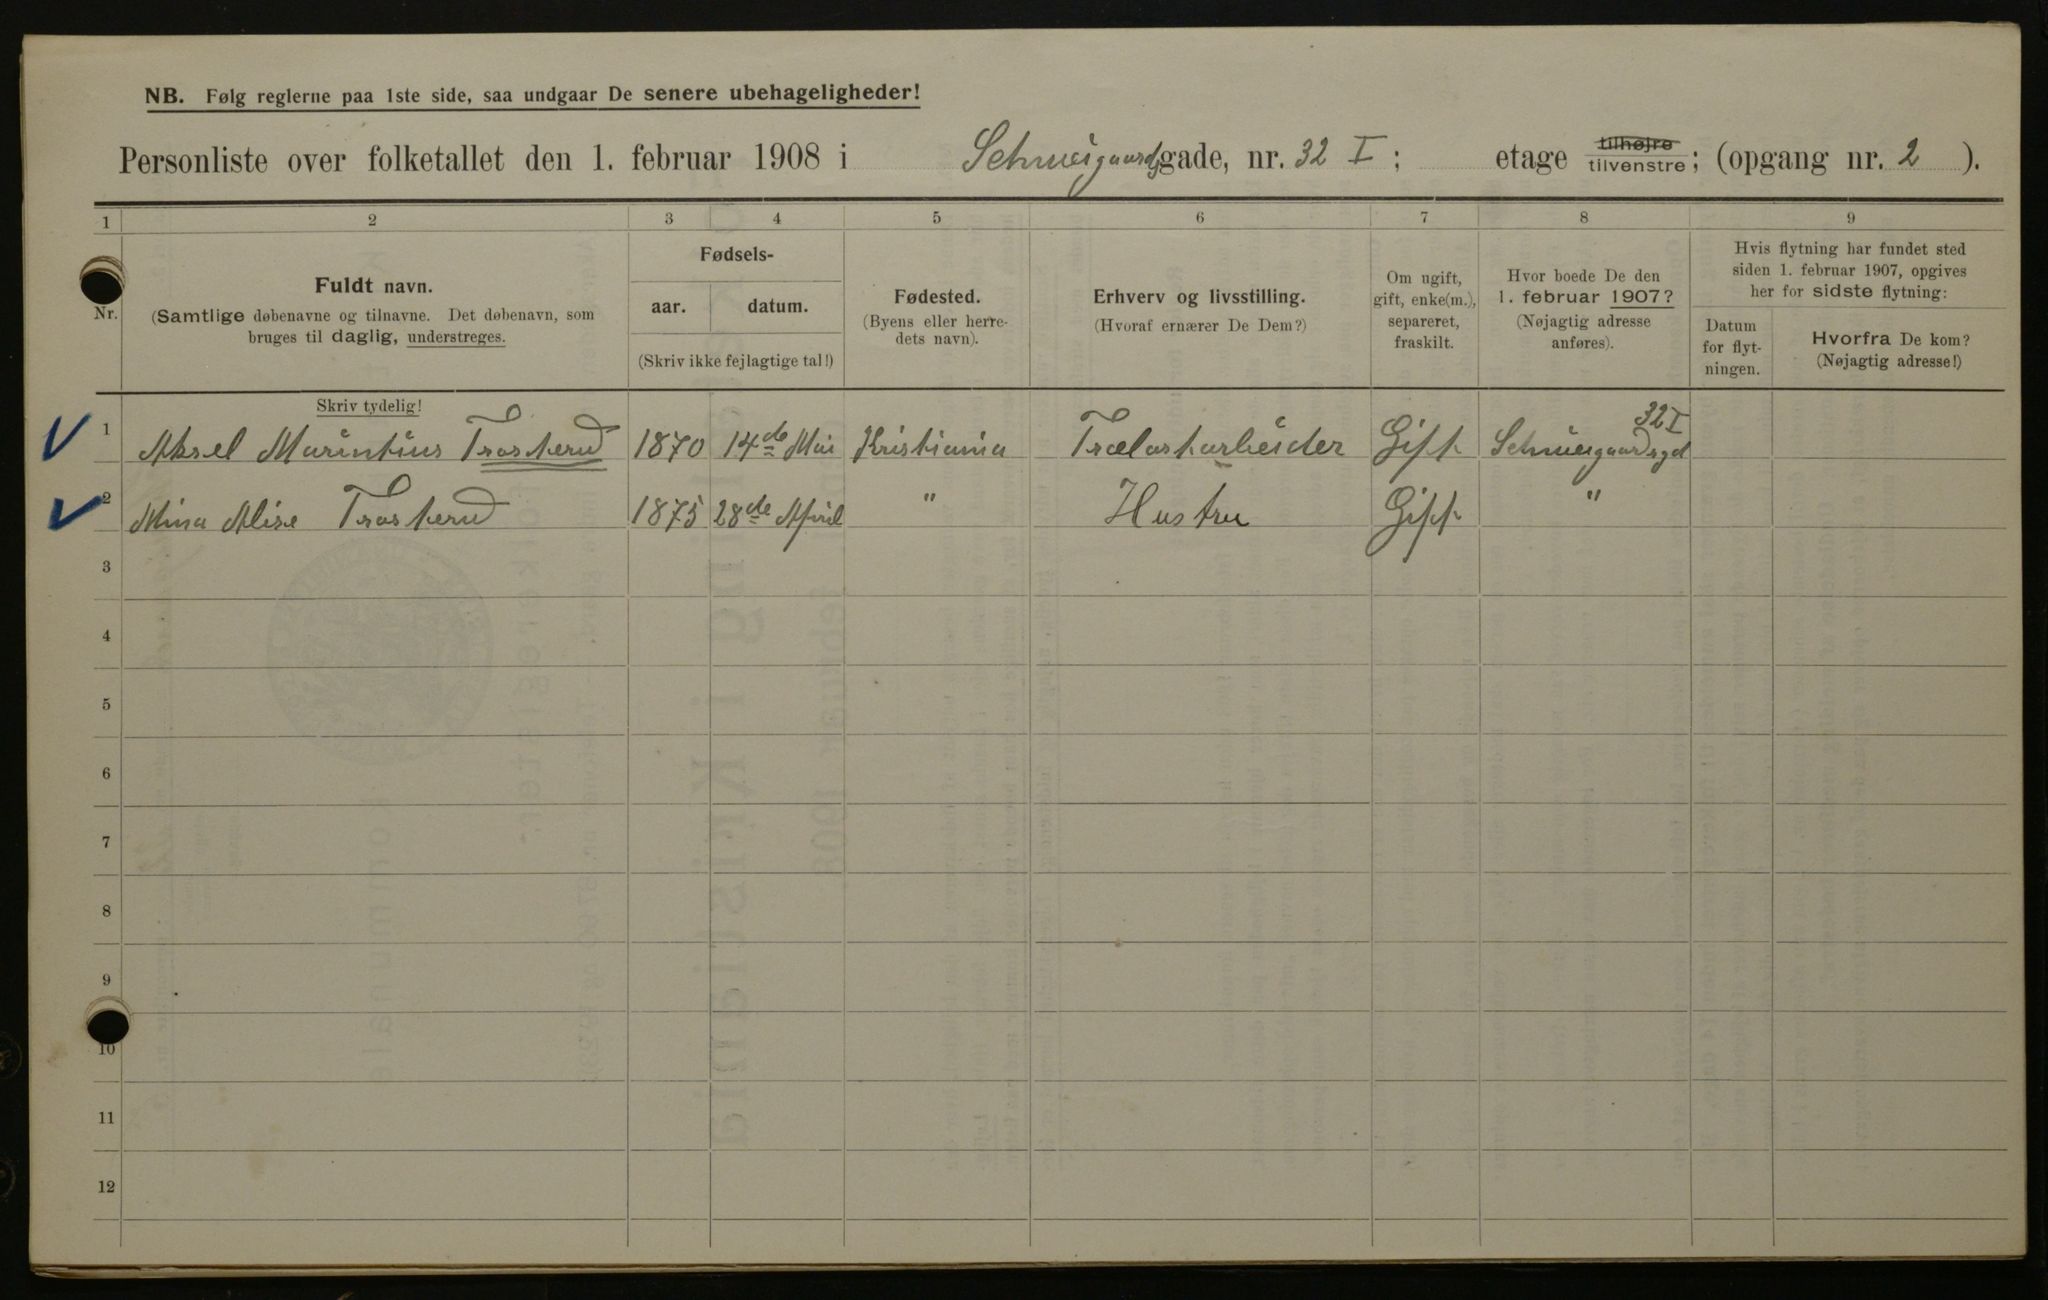 NB. Følg reglerne paa 1ste side, saa undgaar De senere ubehageligheder!
Personliste over folketallet den 1. februar 1908 i Schweigaardsgade, nr. 32 I; etage tilhøjre tilvenstre; (opgang nr. 2 ).
1 2 3 4 5 6 7 8 9
Nr.
Fuldt navn.
(Samtlige døbenavne og tilnavne. Det døbenavn, som
bruges til daglig, understreges.
Skriv tydelig!
Fødsels-
aar. datum.
(Skriv ikke fejlagtige tal!)
Fødested.
(Byens eller herre-
dets navn).
Erhverv og livsstilling.
(Hvoraf ernærer De Dem?)
Om ugift,
gift, enke(m.),
separeret,
fraskilt.
Hvor boede De den
1. februar 1907?
(Nøjagtig adresse
anføres).
Hvis flytning har fundet sted
siden 1. februar 1907, opgives
her for sidste flytning:
Datum
for flyt-
ningen.
Hvorfra De kom?
(Nøjagtig adresse!)
1 Aksel Marintius Trosterud 1870 14de Mai Kristiania Trælastarbeider Gift Schweigaardsgd 32 I
2 Mina Alise Trosterud 1875 28de April " Hustru Gift "
3
4
5
6
7
8
9
10
11
12